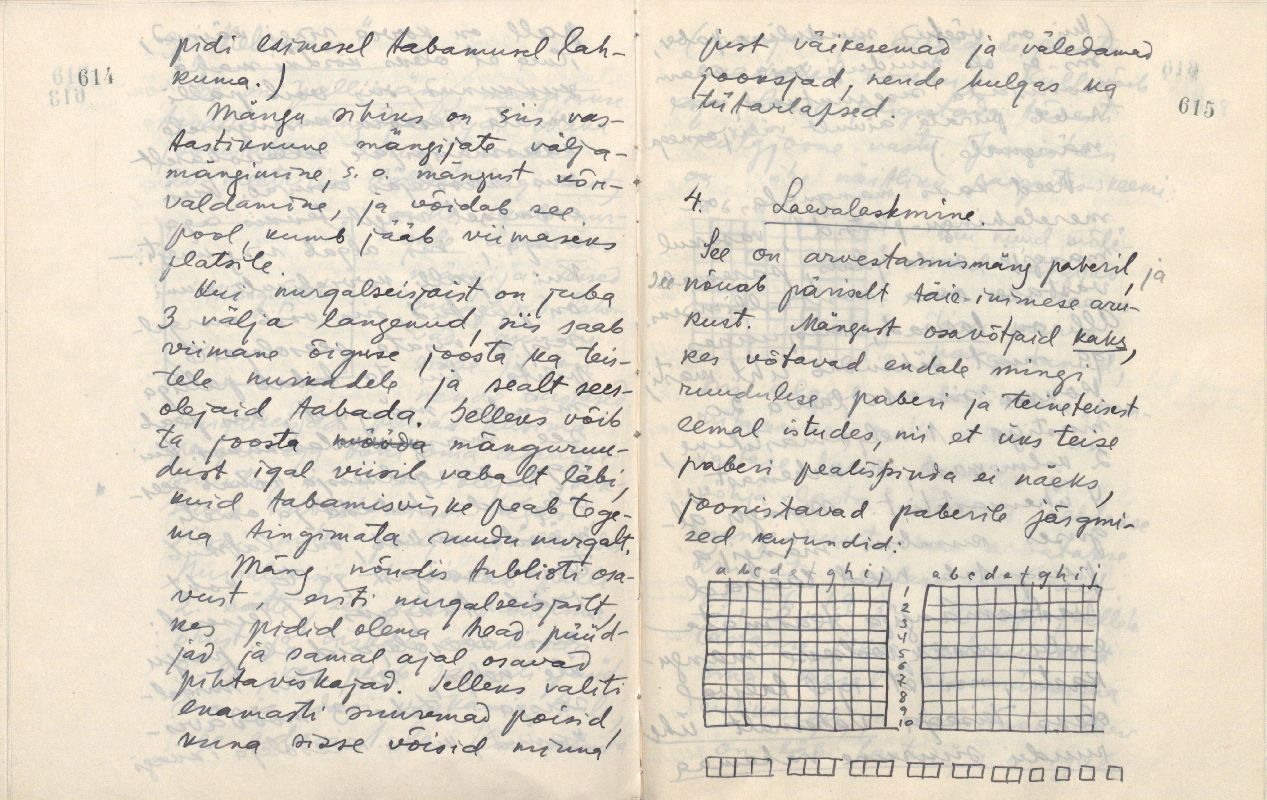 614
pidi esimesel tabamusel lah-
kuma.)
Mängu sihiks on siis vas-
tastikkune mängijate välja-
mängimine, s.o. mängust kõr-
valdamine, ja võidab see
pool, kumb jääb viimaseks
platsile.
Kui nurgalseisjaist on juba
3 välja langenud, siis saab
viimane õiguse joosta ka teis-
tele nurkadele ja sealt sees-
olejaid tabada. Selleks võib
ta joosta mööda mänguruu-
dust igal viisil vabalt läbi,
kuid tabamisviske peab tege-
ma tingimata ruudu nurgalt.
Mäng nõudis tublisti osa-
vust, eriti nurgalseisjailt,
kes pidid olema head püüd-
jad ja samal ajal osavad
pihtaviskajad. Selleks valiti
enamasti suuremad poisid,
kuna sisse võisid minna
615
just väikesemad ja väledamad
jooksjad, nende hulgas ka
tütarlapsed.
4. Laevalaskmine.
See on arvestamismäng paberil, ja
see nõuab päriselt täie-inimese aru-
kust. Mängust osavõtjaid kaks,
kes võtavad endale mingi
ruudulise paberi ja teineteisest
eemal istudes, nii et üks teise
paberi pealispinda ei näeks,
joonistavad paberile järgmi-
sed kujundid:
a b c d e f g h i j a b c d e f g h i j
1
2
3
4
5
6
7
8
9
10